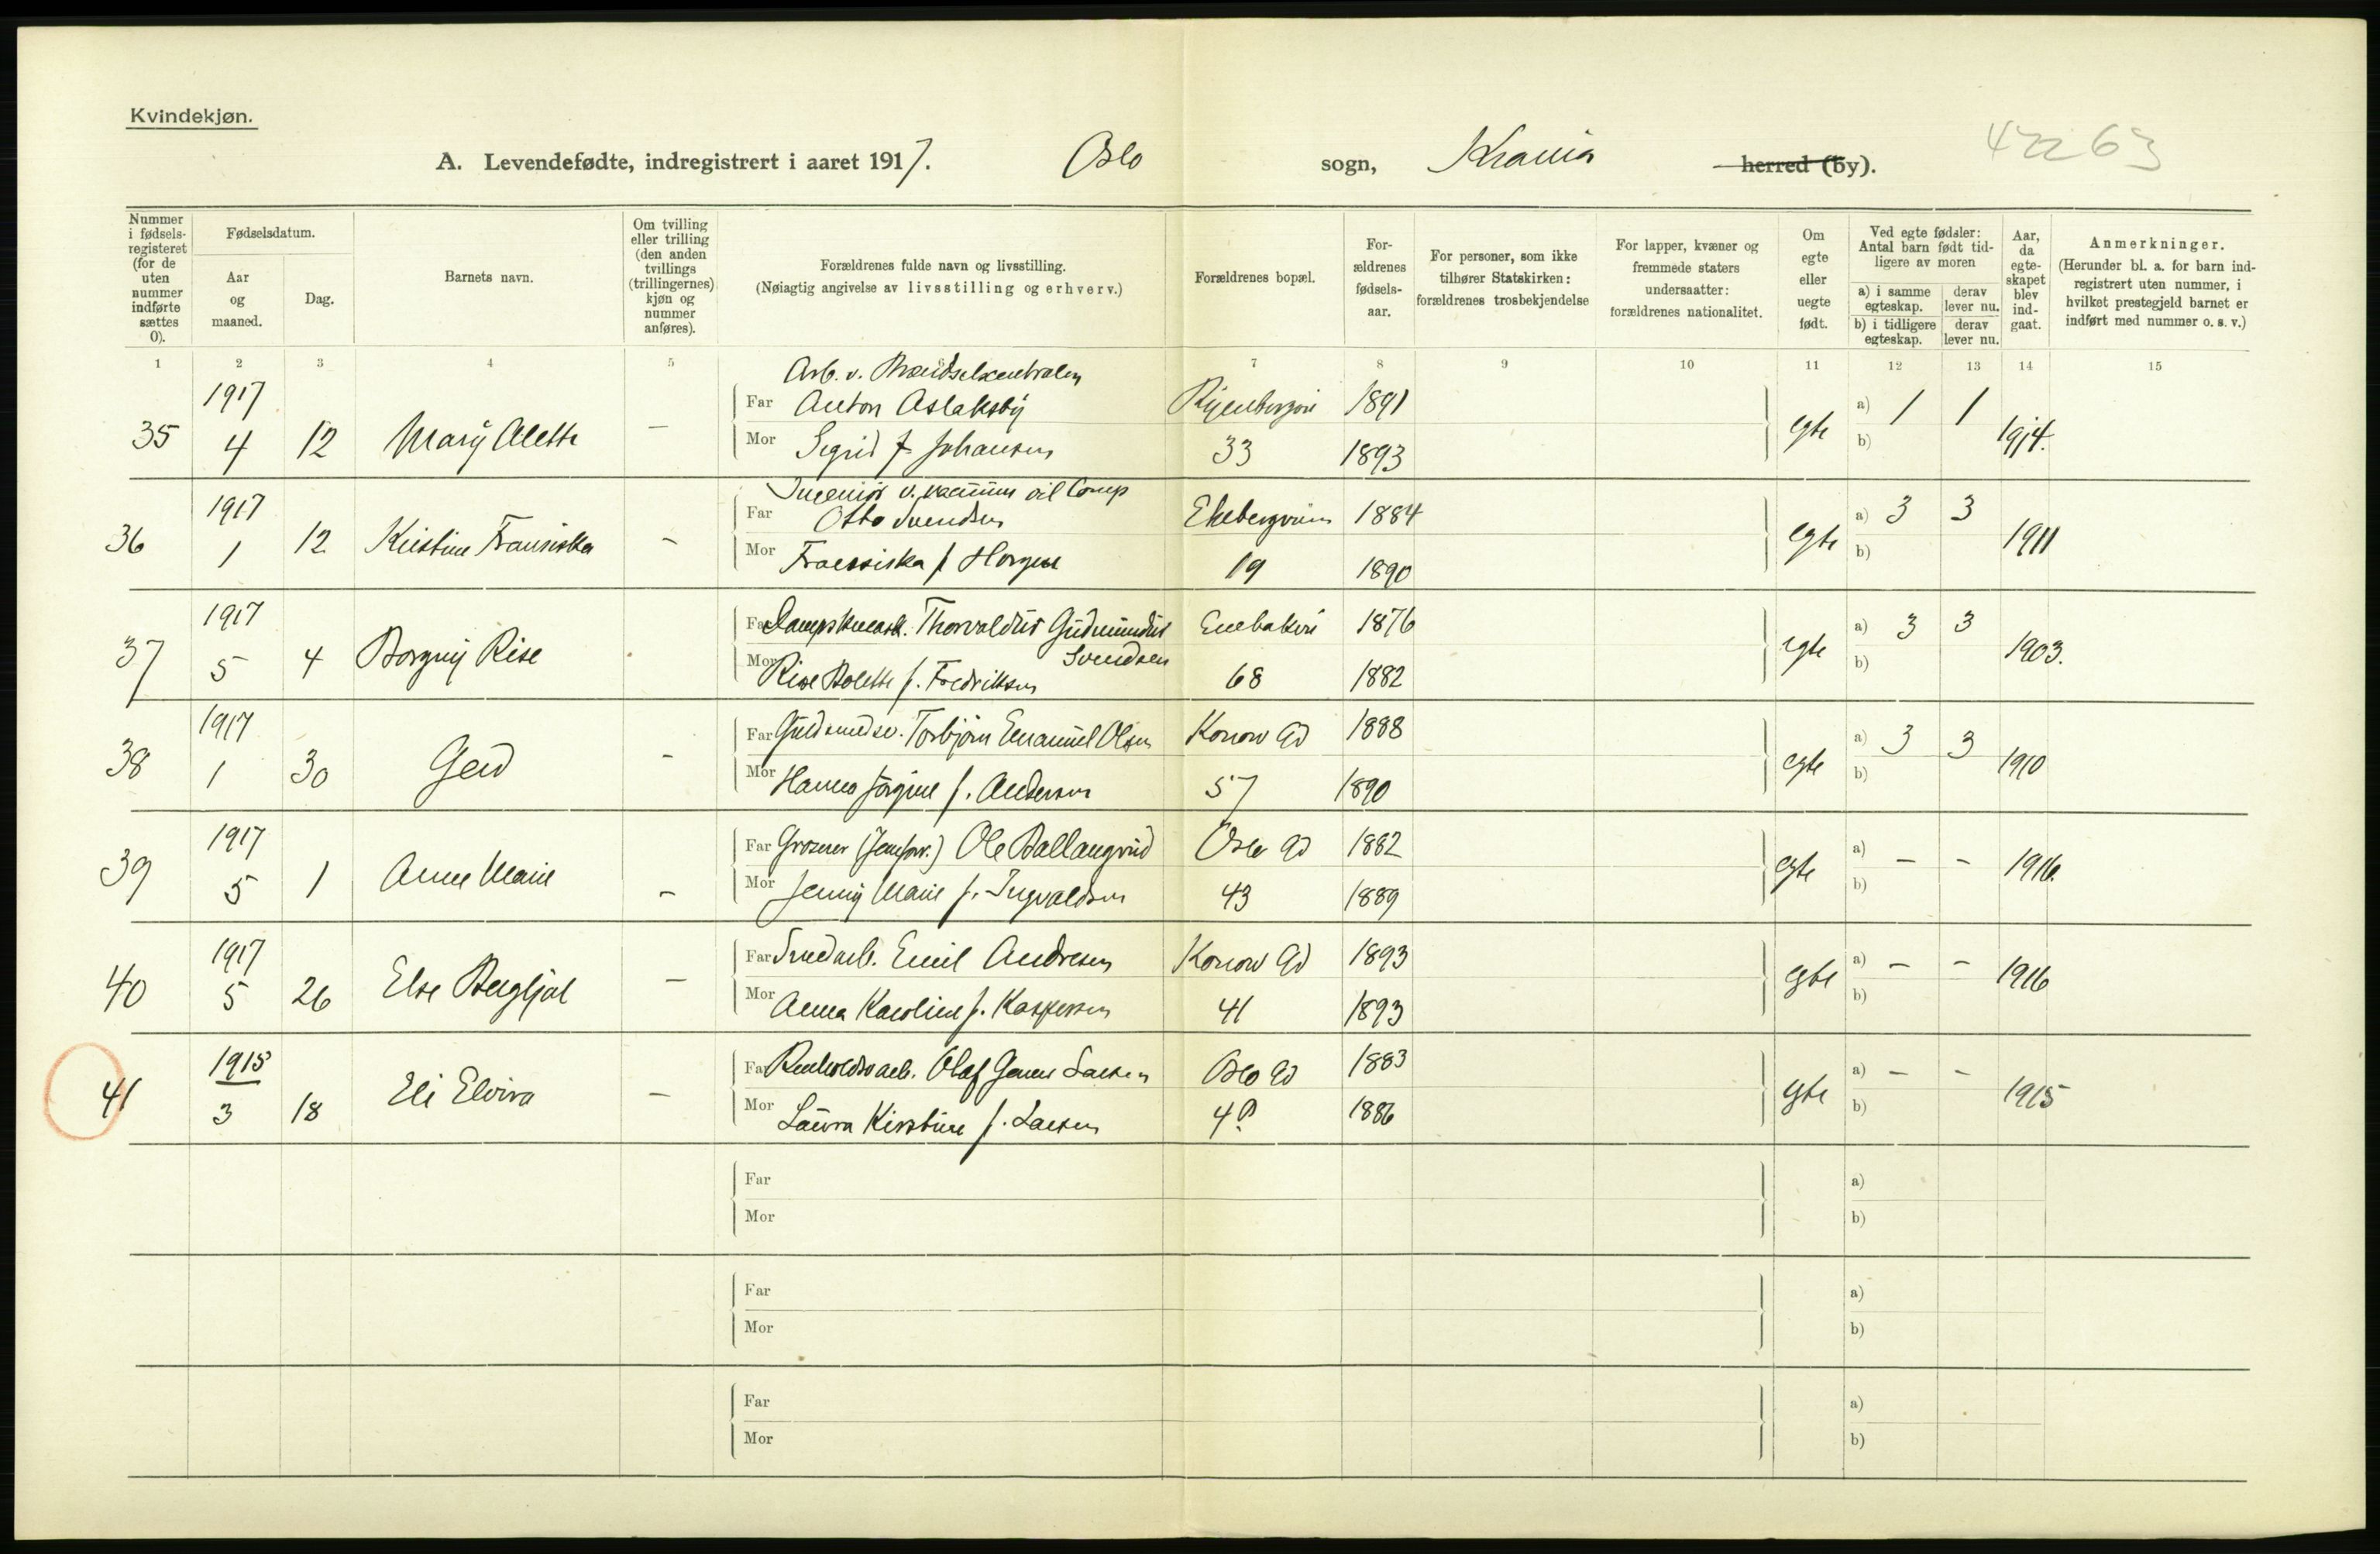 Kvindekjøn.
A. Levendefødte, indregistrert i aaret 1917. Oslo sogn, Krania herred (by). 42263
Nummer i fødsels-registeret (for de uten nummer indførte sættes 0).
Fødselsdatum.
Aar og maaned.
Dag.
Barnets navn.
Om tvilling eller trilling (den anden tvillings (trillingernes) kjøn og nummer anføres).
Forældrenes fulde navn og livsstilling.
(Nøiagtig angivelse av livsstilling og erhverv.)
Forældrenes bopæl.
For-ældrenes fødsels-aar.
For personer, som ikke tilhører Statskirken: forældrenes trosbekjendelse
For lapper, kvæner og fremmede staters undersaatter: forældrenes nationalitet.
Om egte eller uegte født.
Ved egte fødsler: Antal barn født tid-ligere av moren
a) i samme egteskap.
derav lever nu.
b) i tidligere egteskap.
derav lever nu.
Aar, da egte-skapet blev ind-gaat.
Anmerkninger.
(Herunder bl. a. for barn ind-registrert uten nummer, i hvilket prestegjeld barnet er indført med nummer o. s. v.)
1 2 3 4 5 7 8 9 10 11 12 13 14 15
Arb. v. Brændselcentralen
1917 Far Anton Aslaksby 1891 a) 1 1
35 4 12 Mary Alette — Mor Sigrid f. Johansen 33 1893 egte b) 1914.
Ingeniør v. vacuum oil Comp
1917 Far Otto Svendsen 1884 a) 3 3
36 1 12 Kristine Fransiska – Mor Fransiska f. Horgen 19 1890 egte b) 1911
1917 Far Thorvaldus Gudmundus 1876 a) 3 3
Svendsen
37 5 4 Borgny Rise Mor Rise Bolette f. Fredriksen 68 1882 egte b) 1903.
1917 Far Guldsmedsv. Torbjørn Emanuel Olsen Konow Gd 1888 a) 3 3
38 1 30 Gerd – Mor Hanna Jørgine f. Andersen 57 1890 egte b) 1910
1917 Far Ole Ballangrud Oslo Gd 1882 a) – –
39 5 1 Anne Marie – Mor Jenny Marie f. Ingvaldsen 43 1889 egte b) 1916.
1917 Far Smedarb. Emil Andresen Konow Gd 1893 a) – –
40 5 26 Else Bergljot — Mor Anna Karoline f. Kaspersen 41 1893 egte b) 1916
1915 Far Renholdsarb. Olaf Larsen Oslo Gd 1883 a) – –
41 3 18 Eli Elvira — Mor Laura Kirstine f. Larsen 1886 egte b) 1915
Far a)
Mor b)
Far a)
Mor b)
Far a)
Mor b)